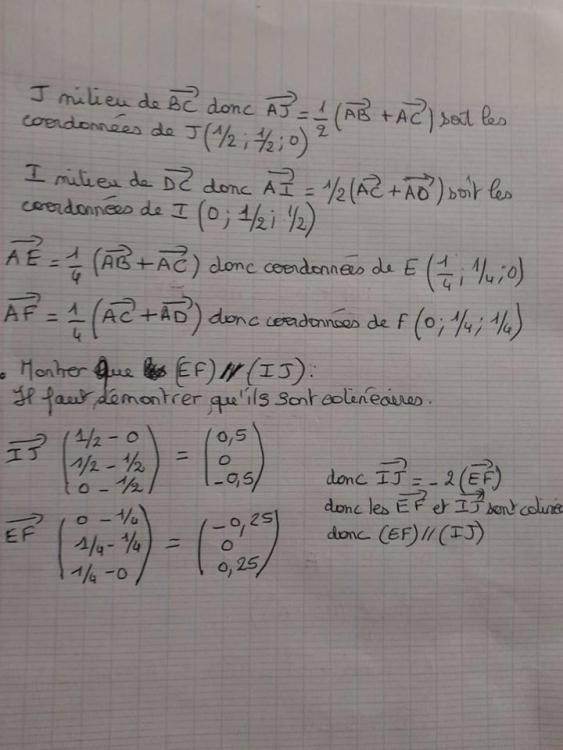 J milieu de BC donc AJ = 1/2 (AB + AC) soit les
coordonnées de J (1/2 ; 1/2 ; 0)
I milieu de DC donc AI = 1/2 (AC + AD) soit les
coordonnées de I (0 ; 1/2 ; 1/2)
AE = 1/4 (AB + AC) donc coordonnées de E (1/4 ; 1/4 ; 0)
AF = 1/4 (AC + AD) donc coordonnées de F (0 ; 1/4 ; 1/4)
. Montrer que (EF) // (IJ) :
Il faut démontrer qu'ils sont colinéaires.
IJ (1/2 - 0 1/2 - 1/2 0 - 1/2) = (0,5 0 -0,5)
EF (0 - 1/4 1/4 - 1/4 1/4 - 0) = (-0,25 0 0,25)
donc IJ = - 2 (EF)
donc les EF et IJ sont
donc (EF) // (IJ)